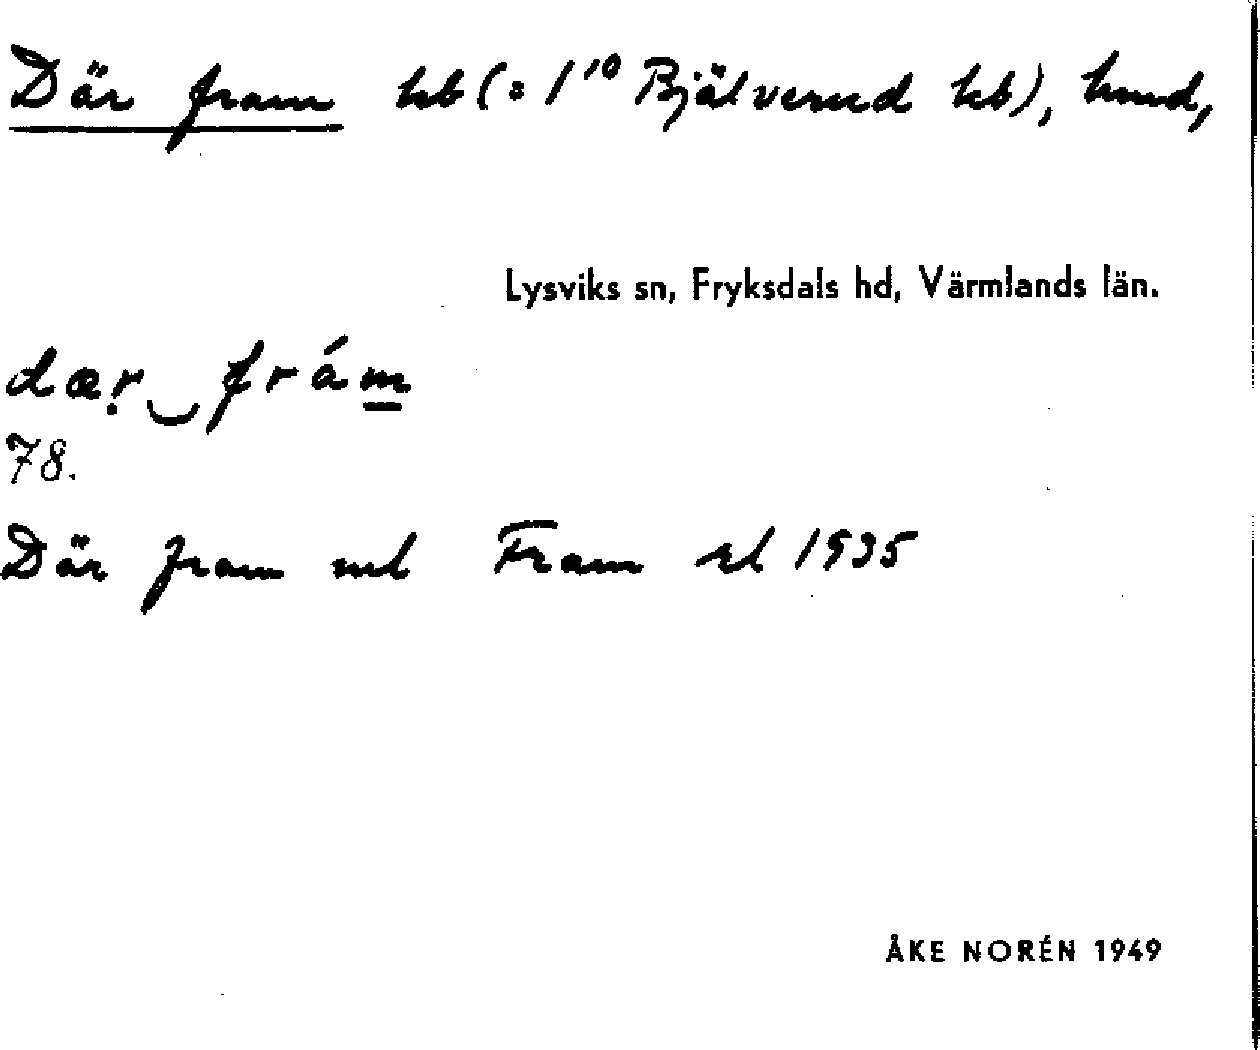 Där fram hb (= 1¹⁰ Bjälverud hb), hmd,
Lysviks sn, Fryksdals hd, Värmlands län.
dær̤‿frám̲
78.
Där fram ml Fram rl 1935
ÅKE NORÉN 1949